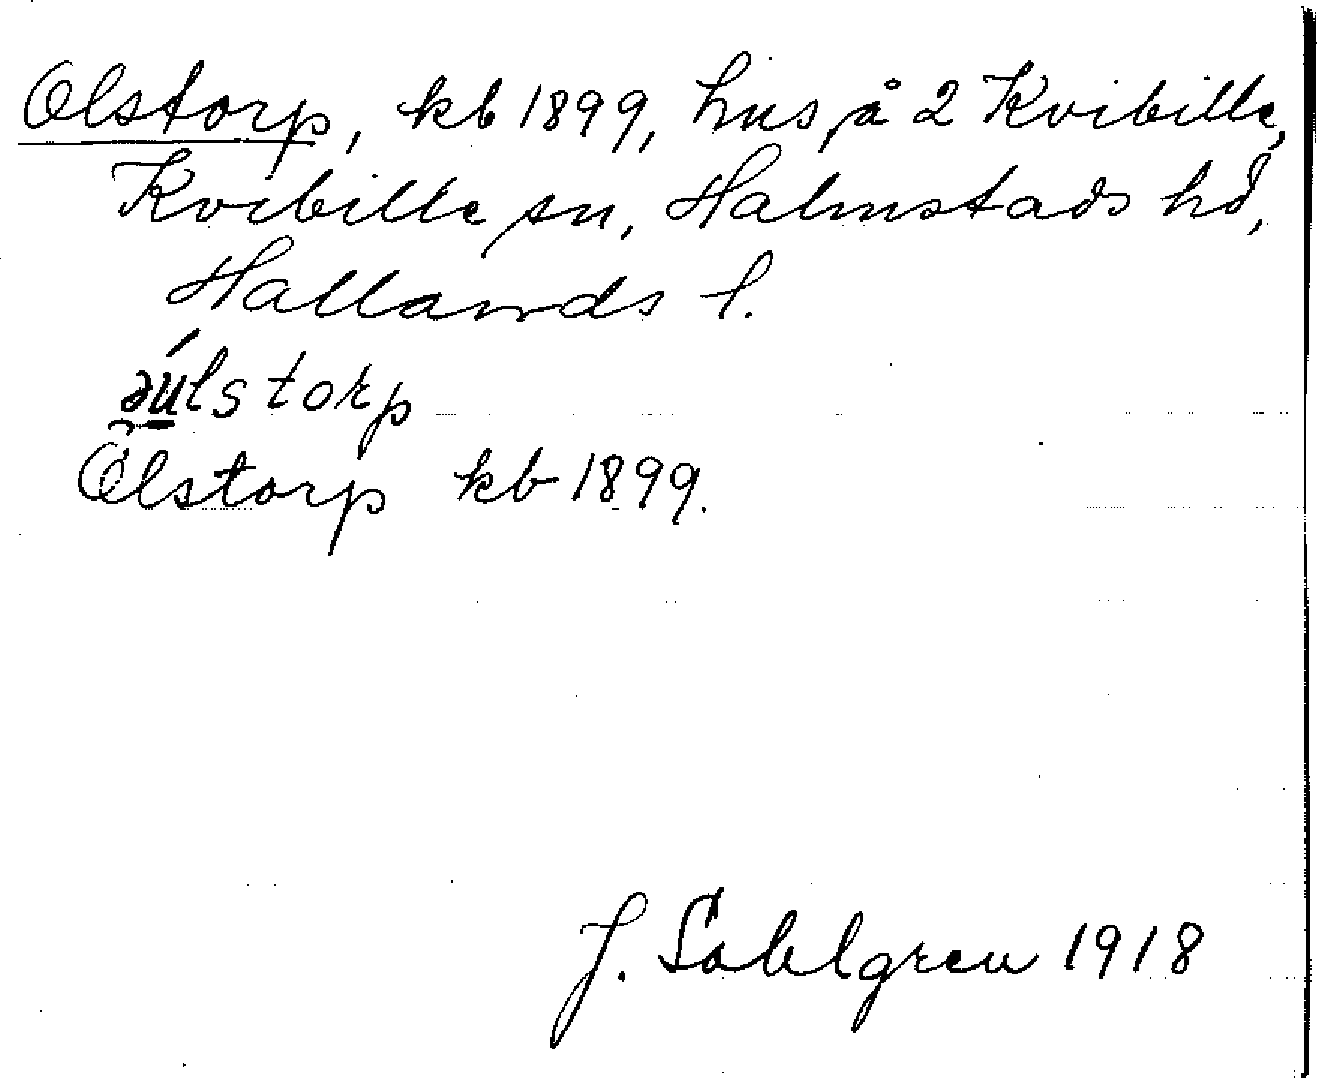 Olstorp, kb 1899, hus å 2 Kvibille,
Kvibille sn, Halmstads hd,
Hallands l.
əúlstorp
Olstorp kb 1899.
J. Sahlgren 1918